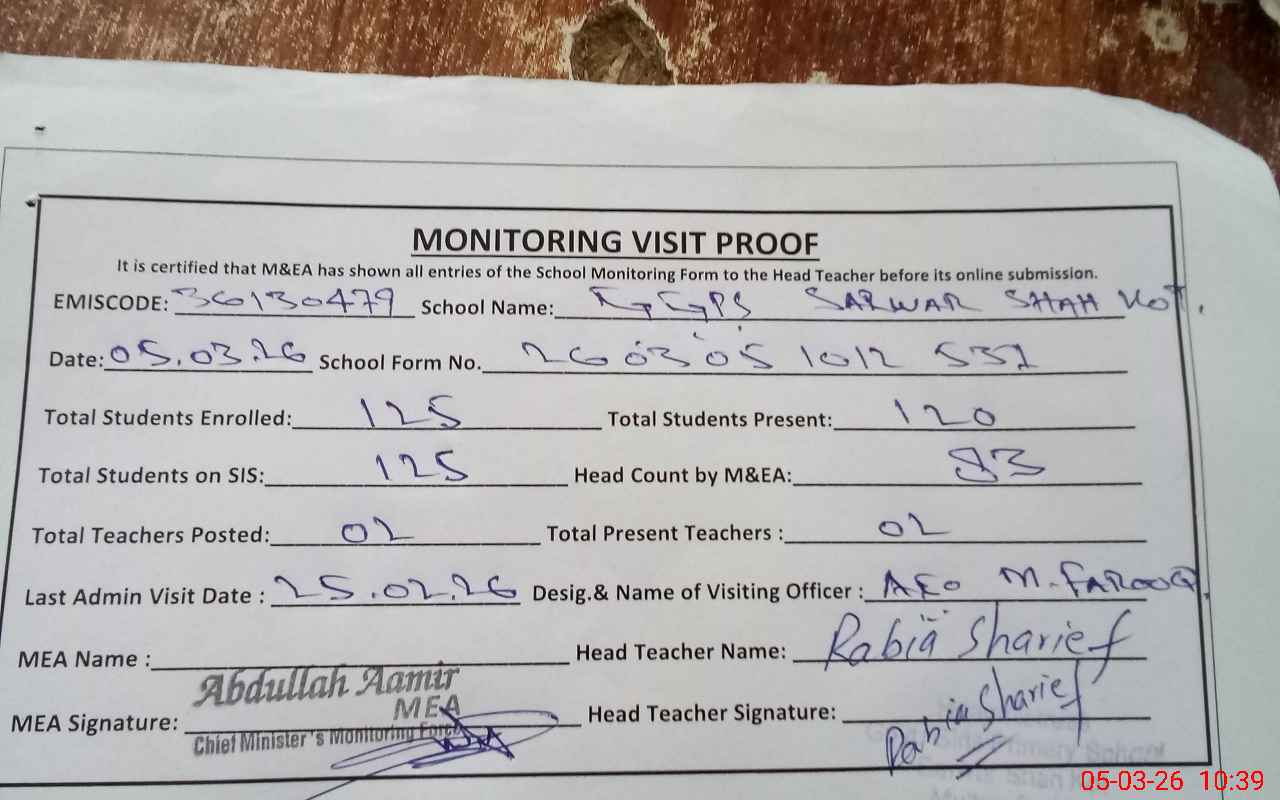 MONITORING VISIT PROOF
It is certified that M&EA has shown all entries of the School Monitoring Form to the Head Teacher before its online submission.
EMISCODE: 36130479 School Name: GGPS SARWAR SHAH KOT.
Date: 05.03.26 School Form No. 26 03 05 1012 531
Total Students Enrolled: 125 Total Students Present: 120
Total Students on SIS: 125 Head Count by M&EA: 83
Total Teachers Posted: 02 Total Present Teachers : 02
Last Admin Visit Date : 25.02.26 Desig.& Name of Visiting Officer : AEO M. FAROOQ.
MEA Name : Head Teacher Name: Rabia Sharief
Abdullah Aamir
MEA
MEA Signature: Head Teacher Signature: Rabia Sharief
Chief Minister's Monitoring Force
Primary School
05-03-26 10:39